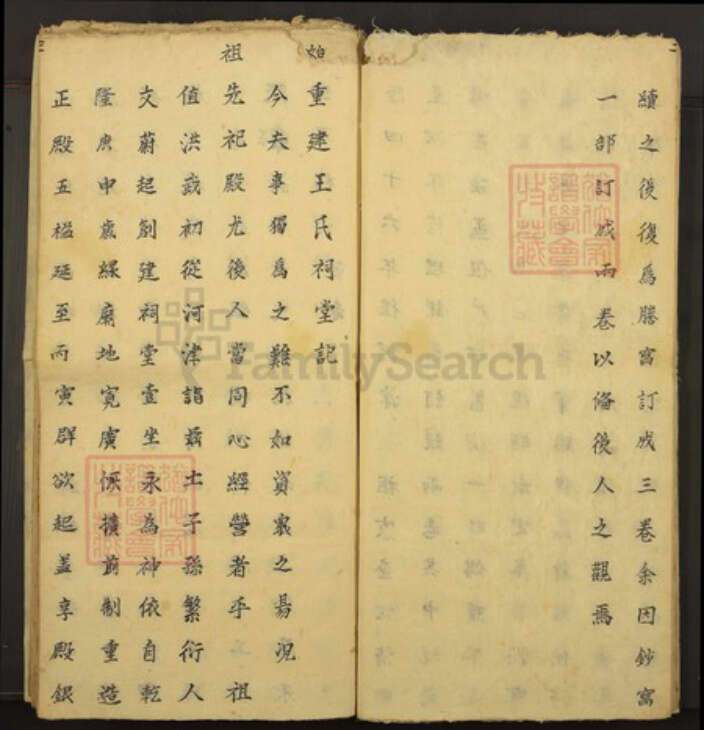 續之後復為謄寫訂成三卷余因鈔寫
一部訂成兩卷以俻後人之觀焉
重建王氏祠堂記
始
今夫事獨為之難不如資衆之易況
祖
先祀殿尤後人當同心經營者乎祖
值洪武初從河津詣茲土子孫繁衍人
文蔚起創建祠堂壹坐永為神依自乾
隆庚申歲緣廟地寬廣恢擴前制重造
正殿五楹延至丙寅群欲起盖享殿銀
FamilySearch